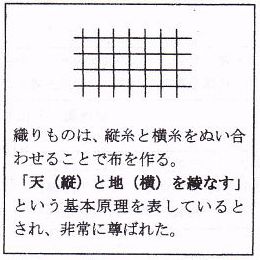 織りものは、縦糸と横糸をぬい合
わせることで布を作る。
「天（縦）と地（横）を綾なす」
という基本原理を表していると
され、非常に尊ばれた。